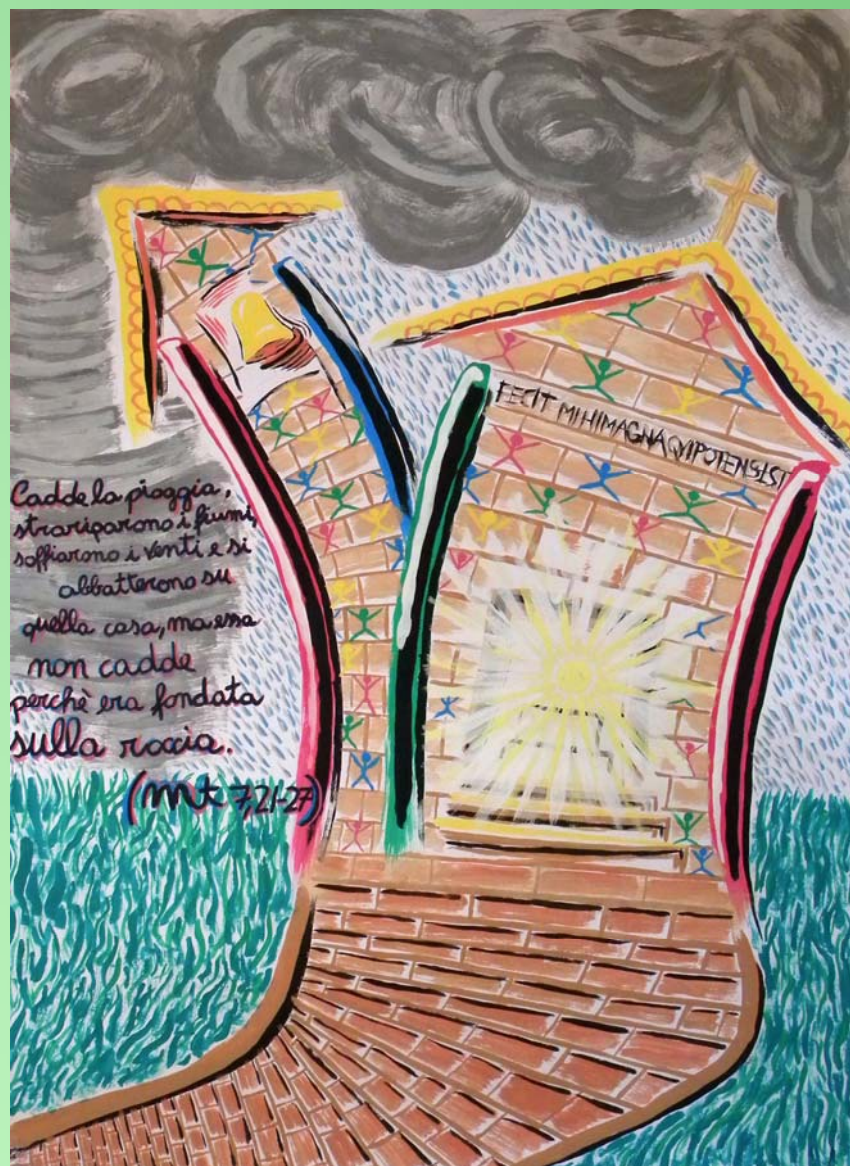 FECIT MIHI MAGNA QVI POTENS EST
Cadde la pioggia,
strariparono i fiumi,
soffiarono i venti e si
abbatterono su
quella casa, ma essa
non cadde
perchè era fondata
sulla roccia.
(Mt 7,21-27)